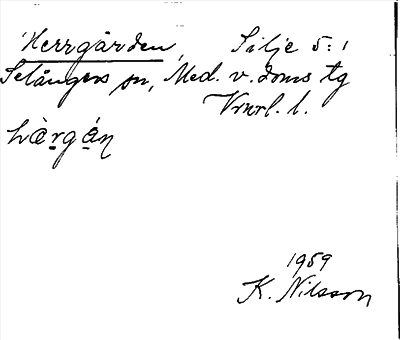 Herrgården, Silje 5:1
Selångers sn, Med. v. doms tg
Vrnrl. l.
hàrgán
1959
K. Nilsson